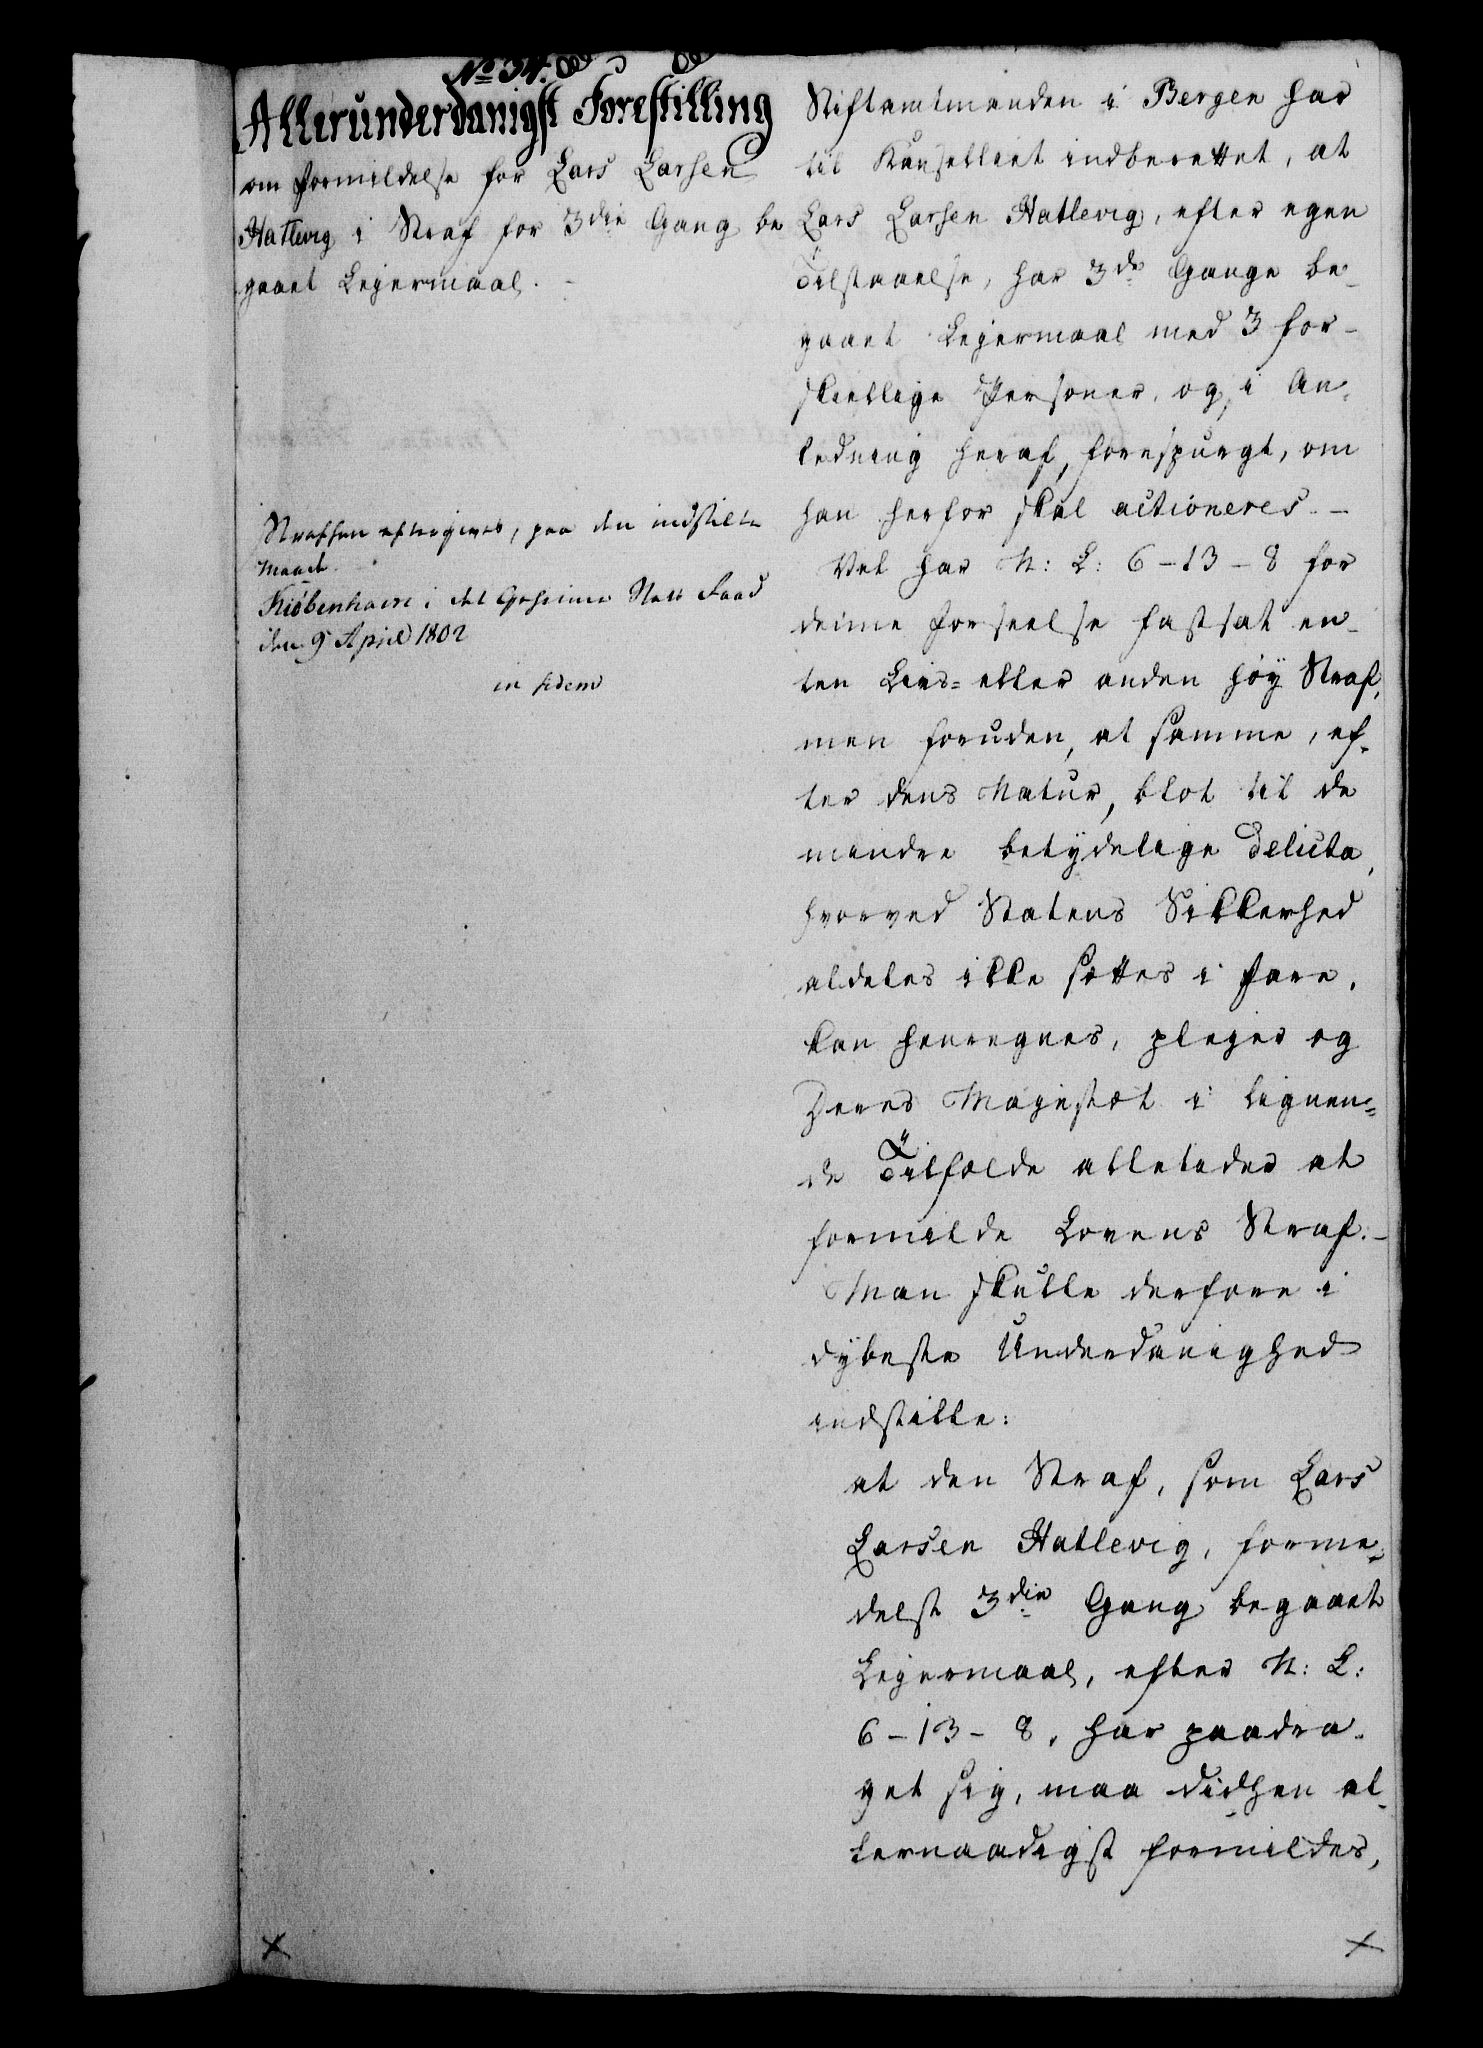 No 34.
Allerunderdanigst Forestilling
om Formildelse for Lars Larsen
Hatlevig i Straf for 3die Gang be
gaaet Lejermaal.
Straffen eftergives, paa den indstilte
Maade.
Kiøbenhavn i det Geheime Stats Raad
den 9 April 1802
in fidem
Stiftamtmanden i Bergen har
til Kanselliet indberettet, at
Lars Larsen Hatlevig, efter egen
Tilstaaelse, har 3de Gange be-
gaaet Lejermaal med 3 for-
skiellige Personer, og, i An-
ledning heraf, forespurgt, om
han herfor skal actioneres. -
Vel har N: L: 6-13-8 for
denne Forseelse fastsat en-
ten Livs- eller anden høy Straf,
men foruden, at samme, ef-
ter dens Natur, blot til de
mindre betydelige Delicta,
hvorved Statens Sikkerhed
aldeles ikke sættes i Fare,
kan henregnes, plejer og
Deres Majestæt i lignen-
de Tilfælde alletider at
formilde Lovens Straf. -
Man skulle derfore i
dybeste Underdanighed
indstille:
at den Straf, som Lars
Larsen Hatlevig, forme-
delst 3die Gang begaaet
Lejermaal, efter N: L:
6-13-8, har paadra-
get sig, maa didhen al-
lernaadigst formildes,